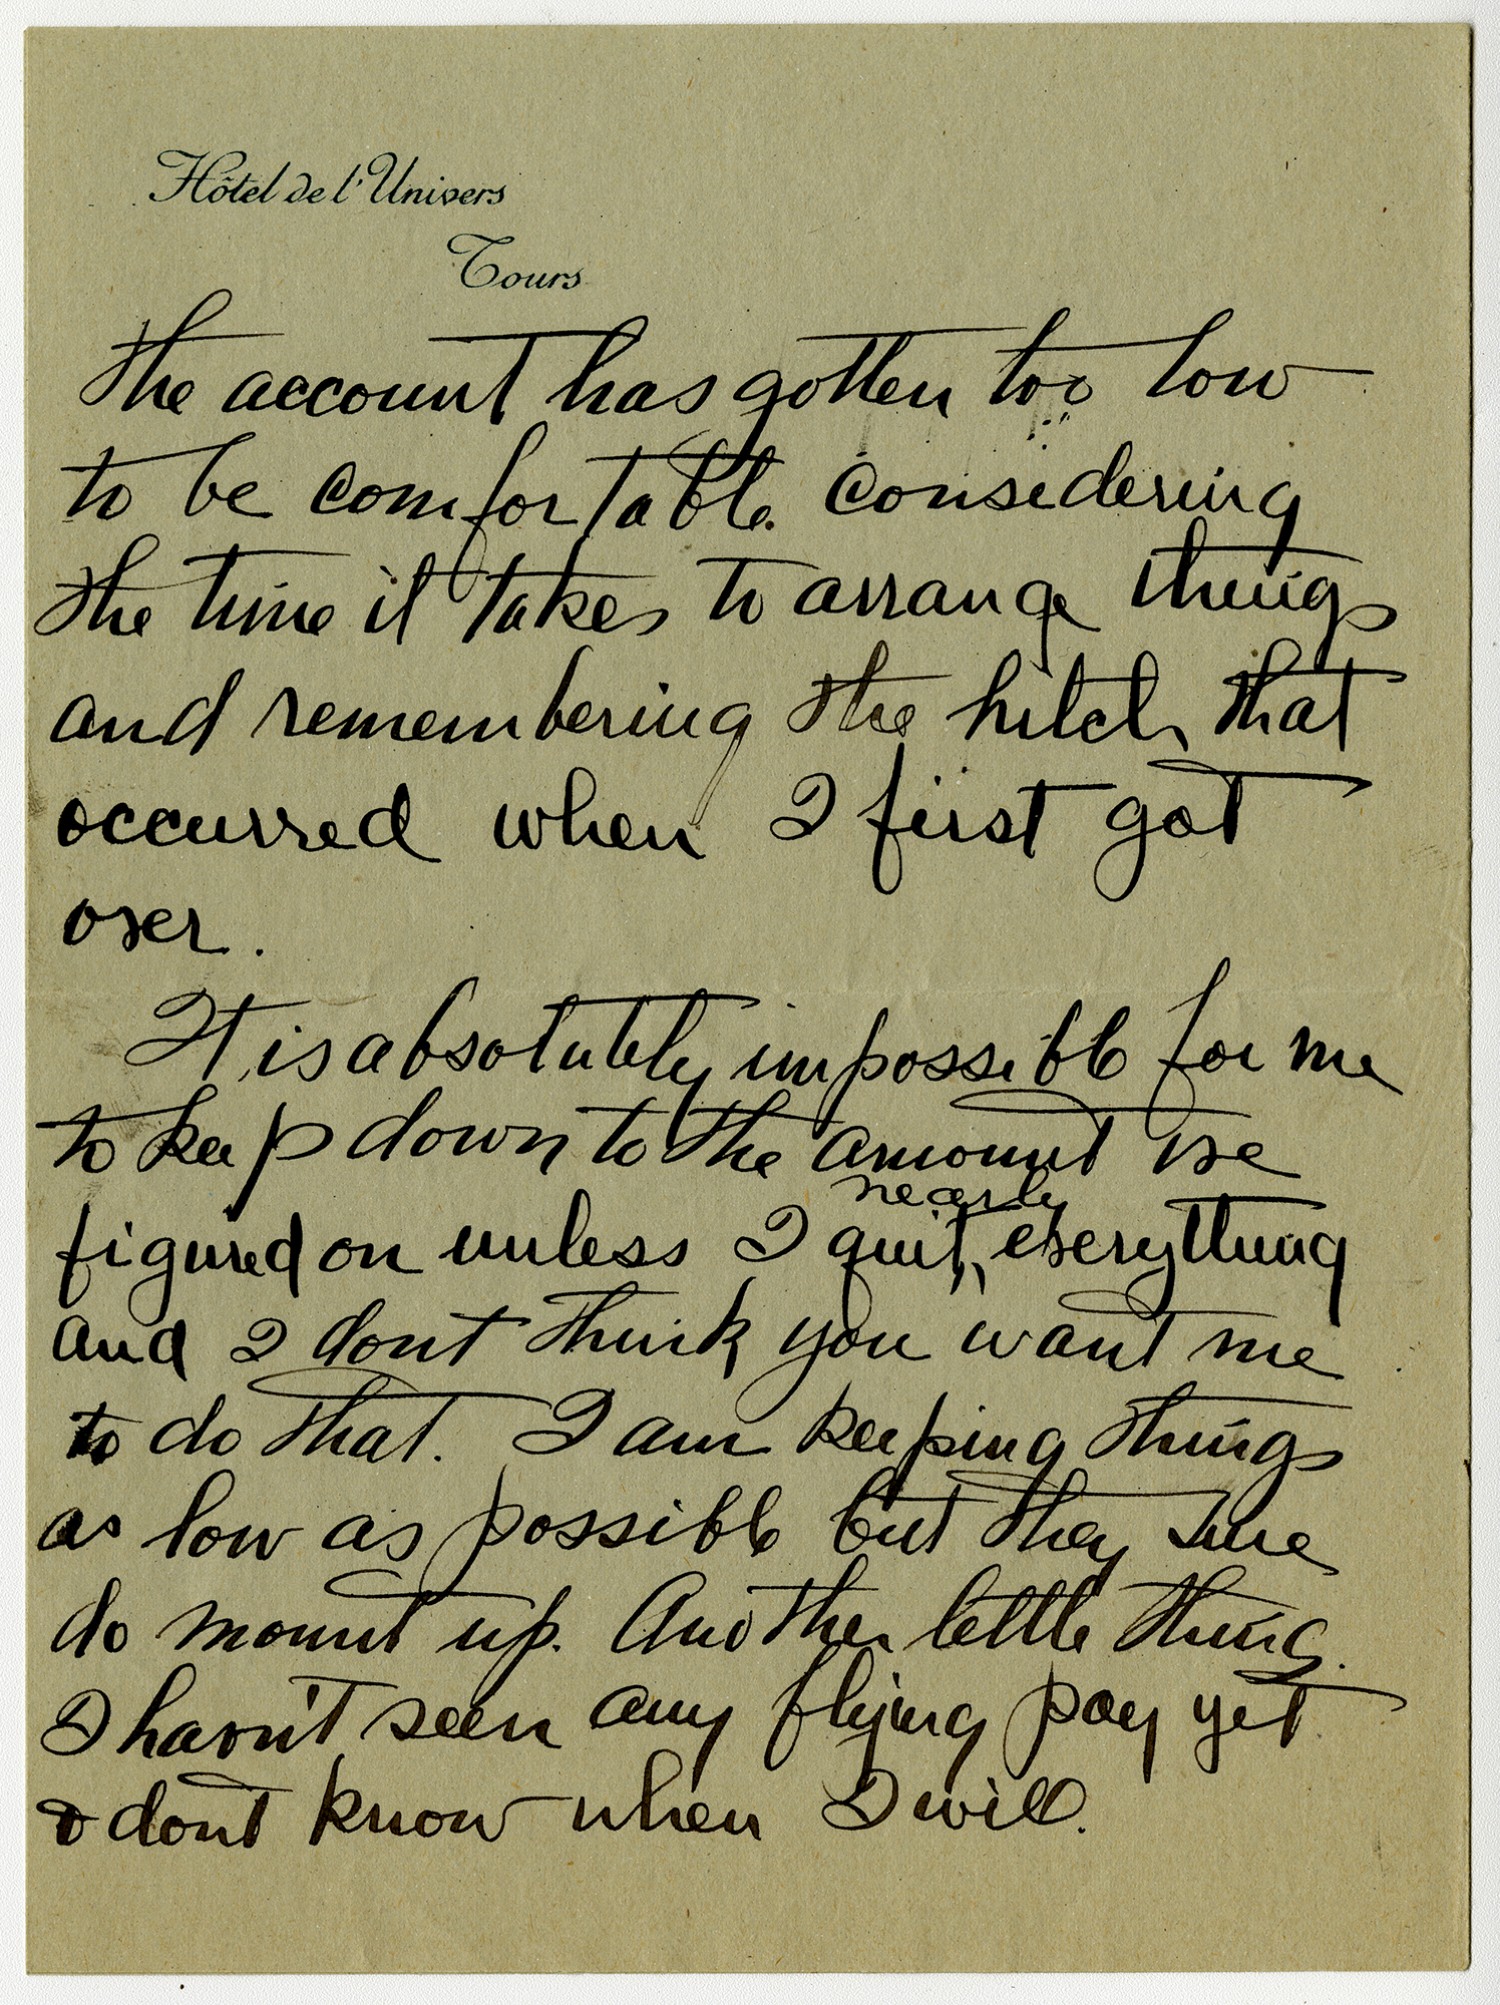 Hôtel de l'Univers
Tours
the account has gotten too low
to be comfortable considering
the time it takes to arrange things
and remembering the hitch that
occurred when I first got
over.
It is absolutely impossible for me
to keep down to the amount we
nearly
figured on unless I quit everything
and I dont think you want me
to do that. I am keeping things
as low as possible but they sure
do mount up. Another little thing.
I havn't seen any flying pay yet
& dont know when I will.